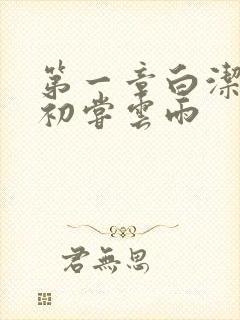 第一章白潔
初嘗雲雨
君無思